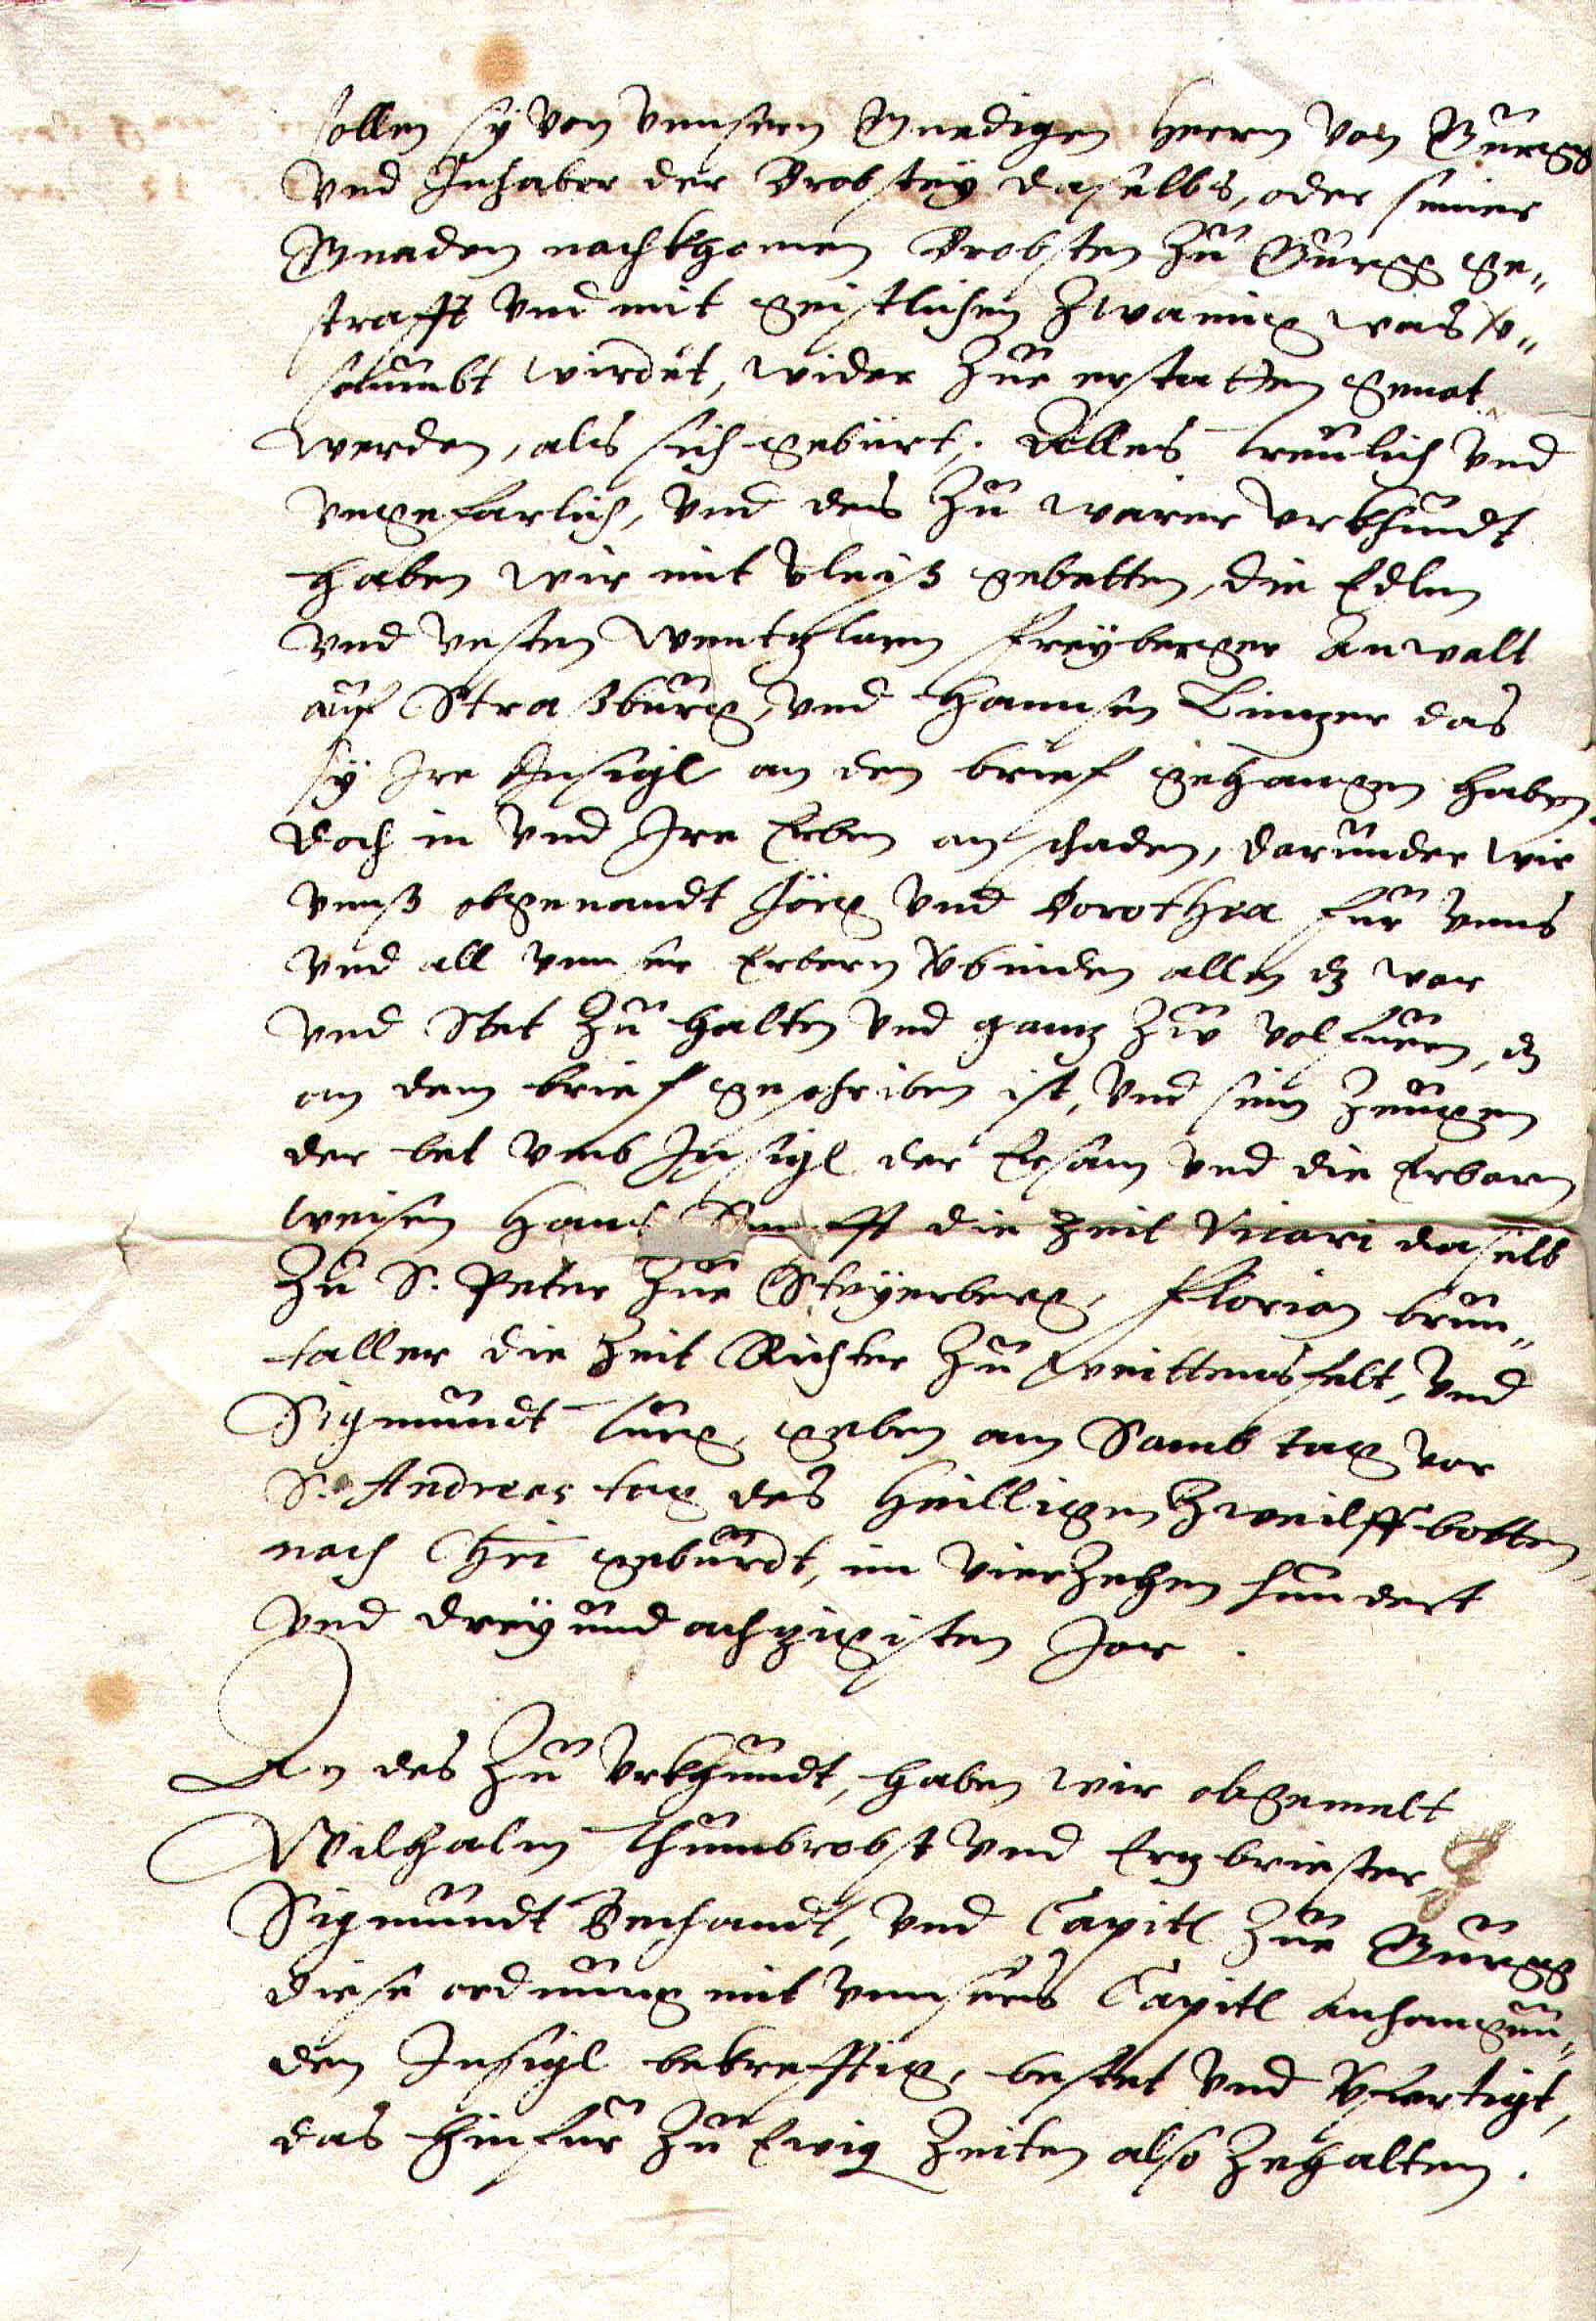 sollen sy von unnsern Gnedigen herrn von Gurgg
Und Inhaber der Brobstey daselbs, oder seiner
Gnaden nachkhomen Brobsten Zu Gurgg ge„
strafft Und mit geistlichen Zwannig was v„
sëumbt wirdet, wider Zue erstatten genot
werden, als sich gebürt. Alles treulich Und
ungefarlich, Und des Zu warer Urkhundt
haben wir mit Vleiß gebetten, die Edlen
Und vesten Wentzlaen Freyberger Anwalt
auf Straßburg, Und Hannsen Linzer das
sy Ire Insigl an den brief gehangen haben
doch in Und Ire Erben on schaden, darunder wir
Unnß obgenandt Jörg Und Dorothea für Unns
Und all Unnser Erbern vbinden allen dz war
Und Stet Zu halten Und gantz Zu volfuern, dz
an dem brief geschriben ist, Und sinn Zeugen
der bet Umb Insigl der Ersam Und die Erbarn
weisen Hanns die Zeit Vicari daselb
Zu S. Peter Zue Steyerberg, Florian brun„
taller die Zeit Richter Zu Weittensfelt, Und
Sigmundt Lurg, geben am Sambtag vor
S. Andrees tag des Heilligen Zweilffbotten
nach Chri geburdt, im Vierzehen hundert
Und drey und achzigisten Jar.
An des Zu Urkhundt, haben wir obgemelt
Wilhalm Thumbrobst Und Ertzbriester
Sigmundt Dechandt, Und Capitl Zue Gurgg
diese ordnung mit Unnsers Capitl anhangun„
den Insigl bekrefftig, bestet Und vfertigt,
das hinfur Zu Ewig Zeiten also Zehalten.